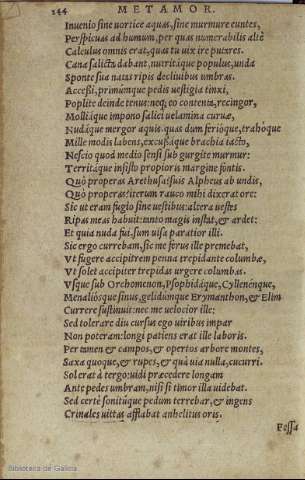 244 METAMOR.
Inuenio sine uortice aquas, sine murmure euntes,
Perspicuas ad humum, per quas numerabilis altè
Calculus omnis erat, quas tu uix ire putares.
Cana salicta dabant, nutritaque populus, unda
Sponte sua natas ripis decliuibus umbras.
Accessi, primúmque pedis uestigia tinxi,
Poplite deinde tenus: neq; eo contenta, recingor,
Molliáque impono salici uelamina curuæ,
Nudáque mergor aquis. quas dum ferióque, trahóque
Mille modis labens, excussáque brachia iacto,
Nescio quod medio sensi sub gurgite murmur:
Territáque insisto propioris margine fontis.
Quò properas Arethusa? suis Alpheus ab undis,
Quò properas? iterum rauco mihi dixerat ore:
Sic ut eram fugio sine uestibus: altera uestes
Ripas meas habuit: tanto magis instat, & ardet:
Et quia nuda fui, sum uisa paratior illi.
Sic ego currebam, sic me ferus ille premebat,
Vt fugere accipitrem penna trepidante columbæ,
Vt solet accipiter trepidas urgere columbas.
Vsque sub Orchomenon, Psophidáque, Cyllenénque,
Menaliósque sinus, gelidúmque Erymanthon, & Elim
Currere sustinui: nec me uelocior ille:
Sed tolerare diu cursus ego uiribus impar
Non poteram: longi patiens erat ille laboris.
Per tamen & campos, & opertos arbore montes,
Saxa quoque, & rupes, & quà uia nulla, cucurri.
Sol erat à tergo: uidi præcedere longam
Ante pedes umbram, nisi si timor illa uidebat.
Sed certè sonitúque pedum terrebar, & ingens
Crinales uittas afflabat anhelitus oris.
Fessa
Biblioteca de Galicia